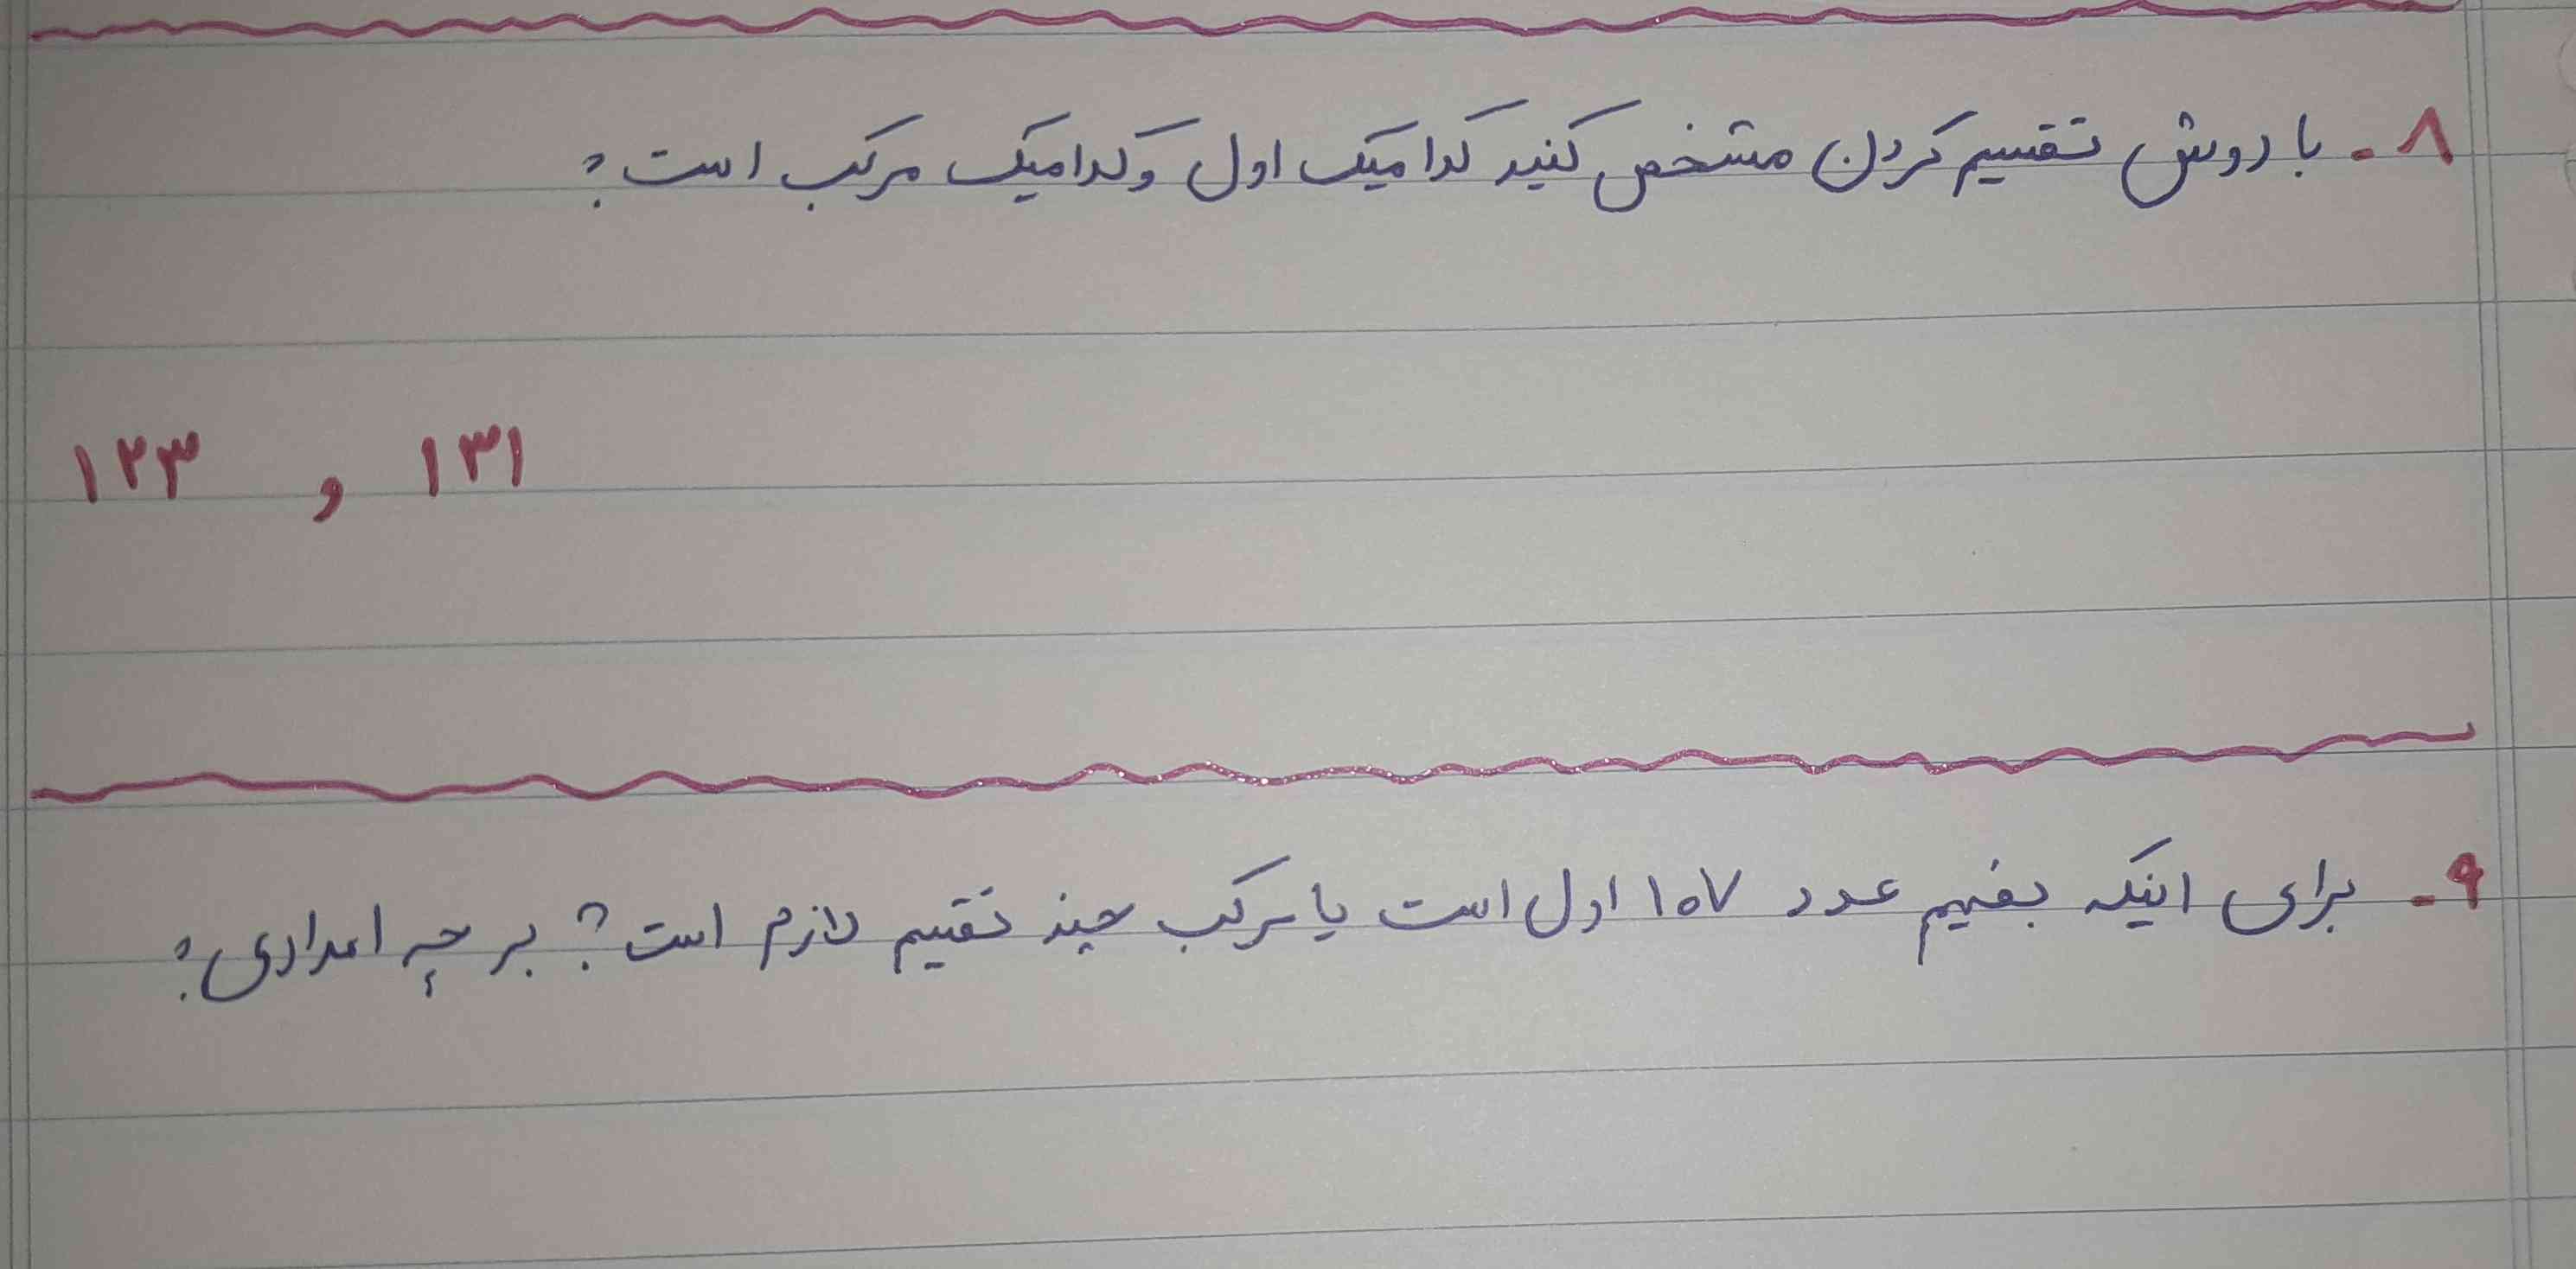 ۸ـ با روش تقسیم کردن مشخص کنید کدامیک اول و کدامیک مرکب است؟
۱۲۳ و ۱۳۱
۹ـ برای اینکه بفهیم عدد ۱۰۷ اول است یا مرکب چند تقسیم لازم است؟ بر چه اعدادی؟